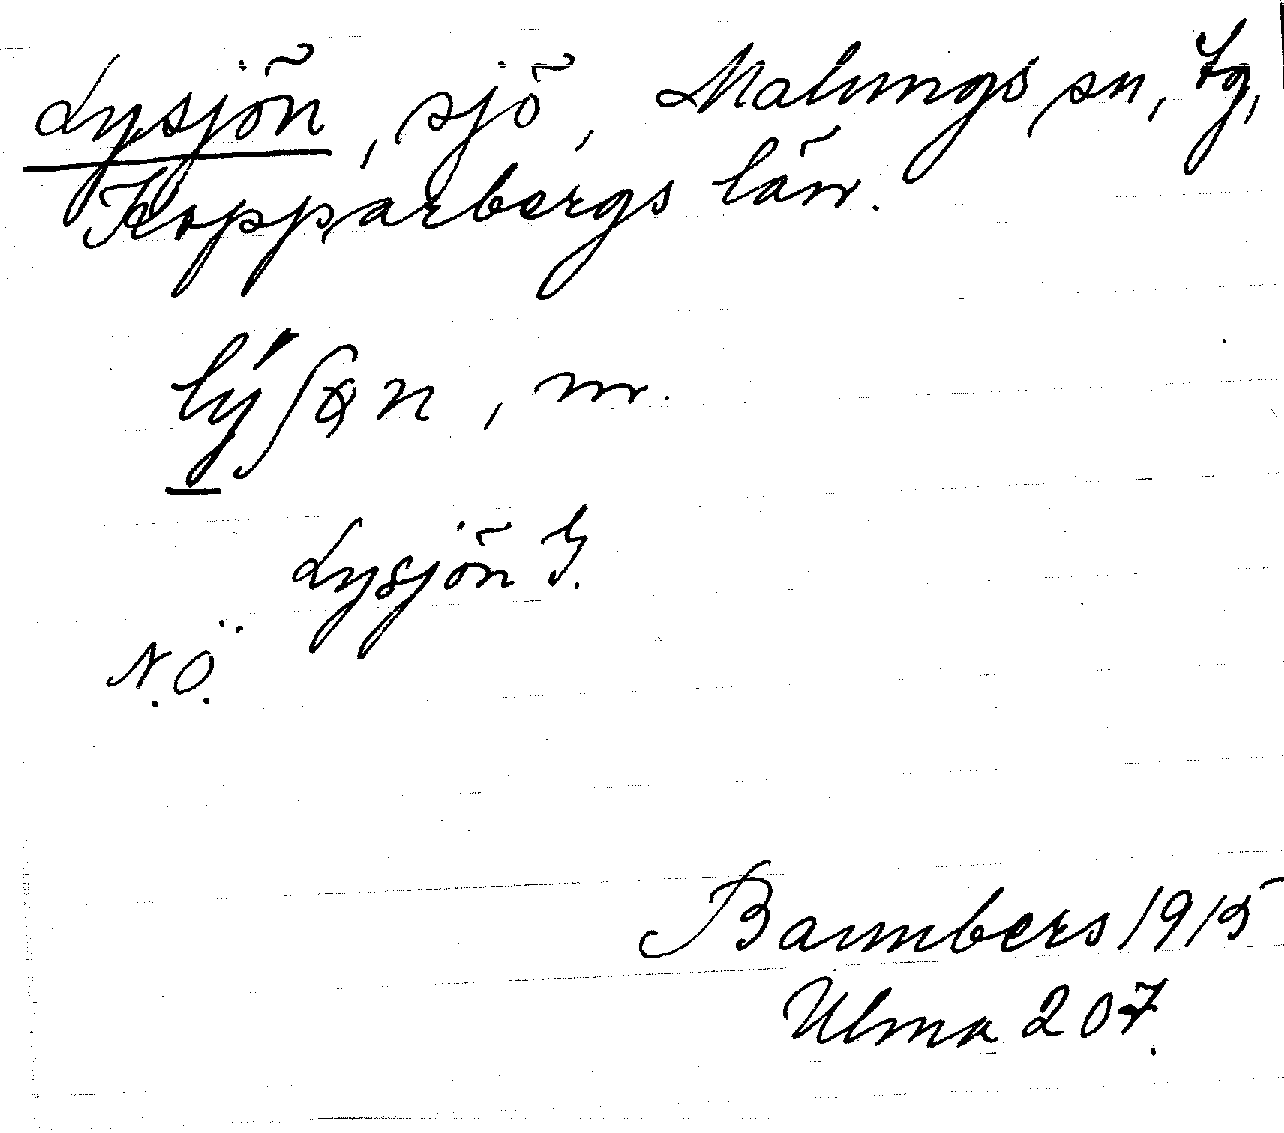 Lysjön, sjö, Malungs sn, tg,
Kopparbergs län.
lýʃɵn, m.
Lysjön G.
N.Ö.
Baumbers 1915
Ulma 207.